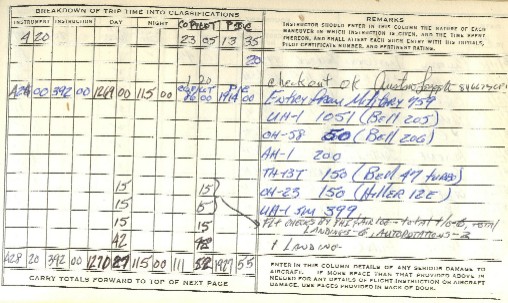 BREAKDOWN OF TRIP TIME INTO CLASSIFICATIONS
INSTRUMENT INSTRUCTION DAY NIGHT COPILOT PIC
REMARKS
INSTRUCTOR SHOULD ENTER IN THIS COLUMN THE NATURE OF EACH
MANEUVER IN WHICH INSTRUCTION IS GIVEN, AND THE TIME SPENT
THEREON, AND SHALL ATTEST EACH SUCH ENTRY WITH HIS INITIALS,
PILOT CERTIFICATE NUMBER, AND PERTINENT RATING.
4 20 23 05 13 35
20
1 20
checkout OK
428 00 392 00 1269 00 115 00 00 1914 00
Entry from Military 959
UH-1 1051 (Bell 205)
OH-58 50 (Bell 206)
AH-1 200
TH-13T 150 (Bell 47 TURBO)
OH-23 150 (Hiller 12E)
15 15
UH-1 SIM 399
15 15
15 15
LANDINGS-6, AUTOROTATIONS-2
42 42
1 LANDING-
428 20 392 00 1270 27 115 00 111 52 1927 55
CARRY TOTALS FORWARD TO TOP OF NEXT PAGE
ENTER IN THIS COLUMN DETAILS OF ANY SERIOUS DAMAGE TO
AIRCRAFT. IF MORE SPACE THAN THAT PROVIDED ABOVE IS
NEEDED FOR ANY DETAILS OF FLIGHT INSTRUCTION OR AIRCRAFT
DAMAGE, USE PAGES PROVIDED IN BACK OF BOOK.